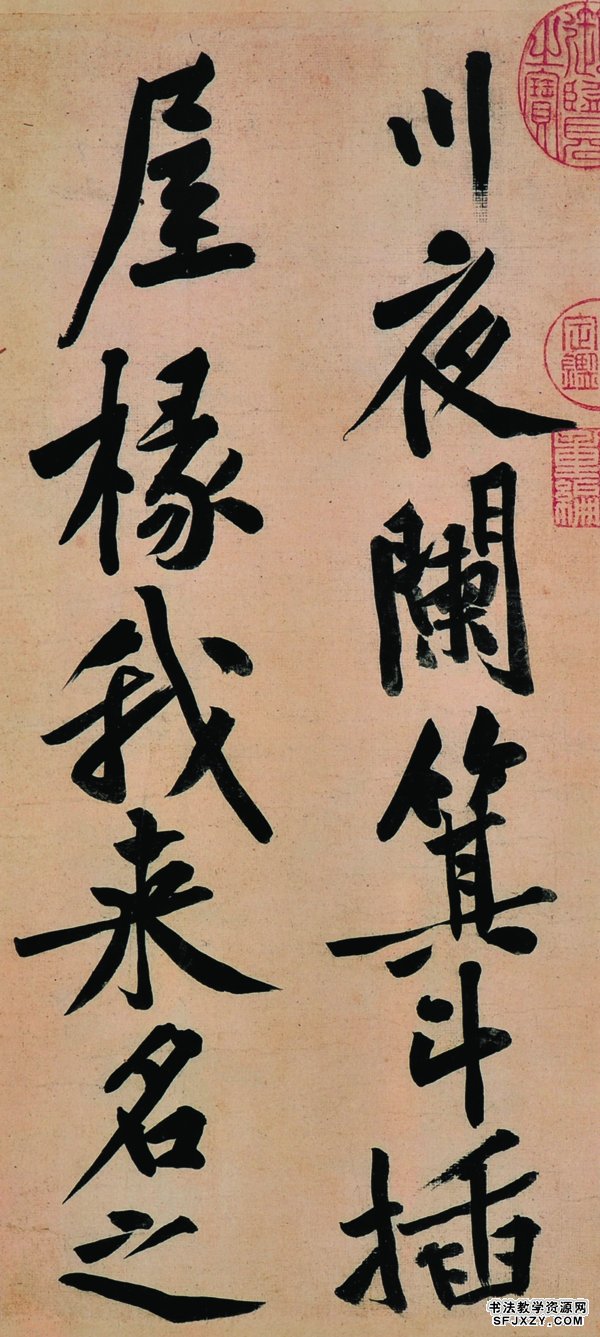 川夜闌箕斗插
屋椽我来名之
書法教学资源网
SFJXZY.COM